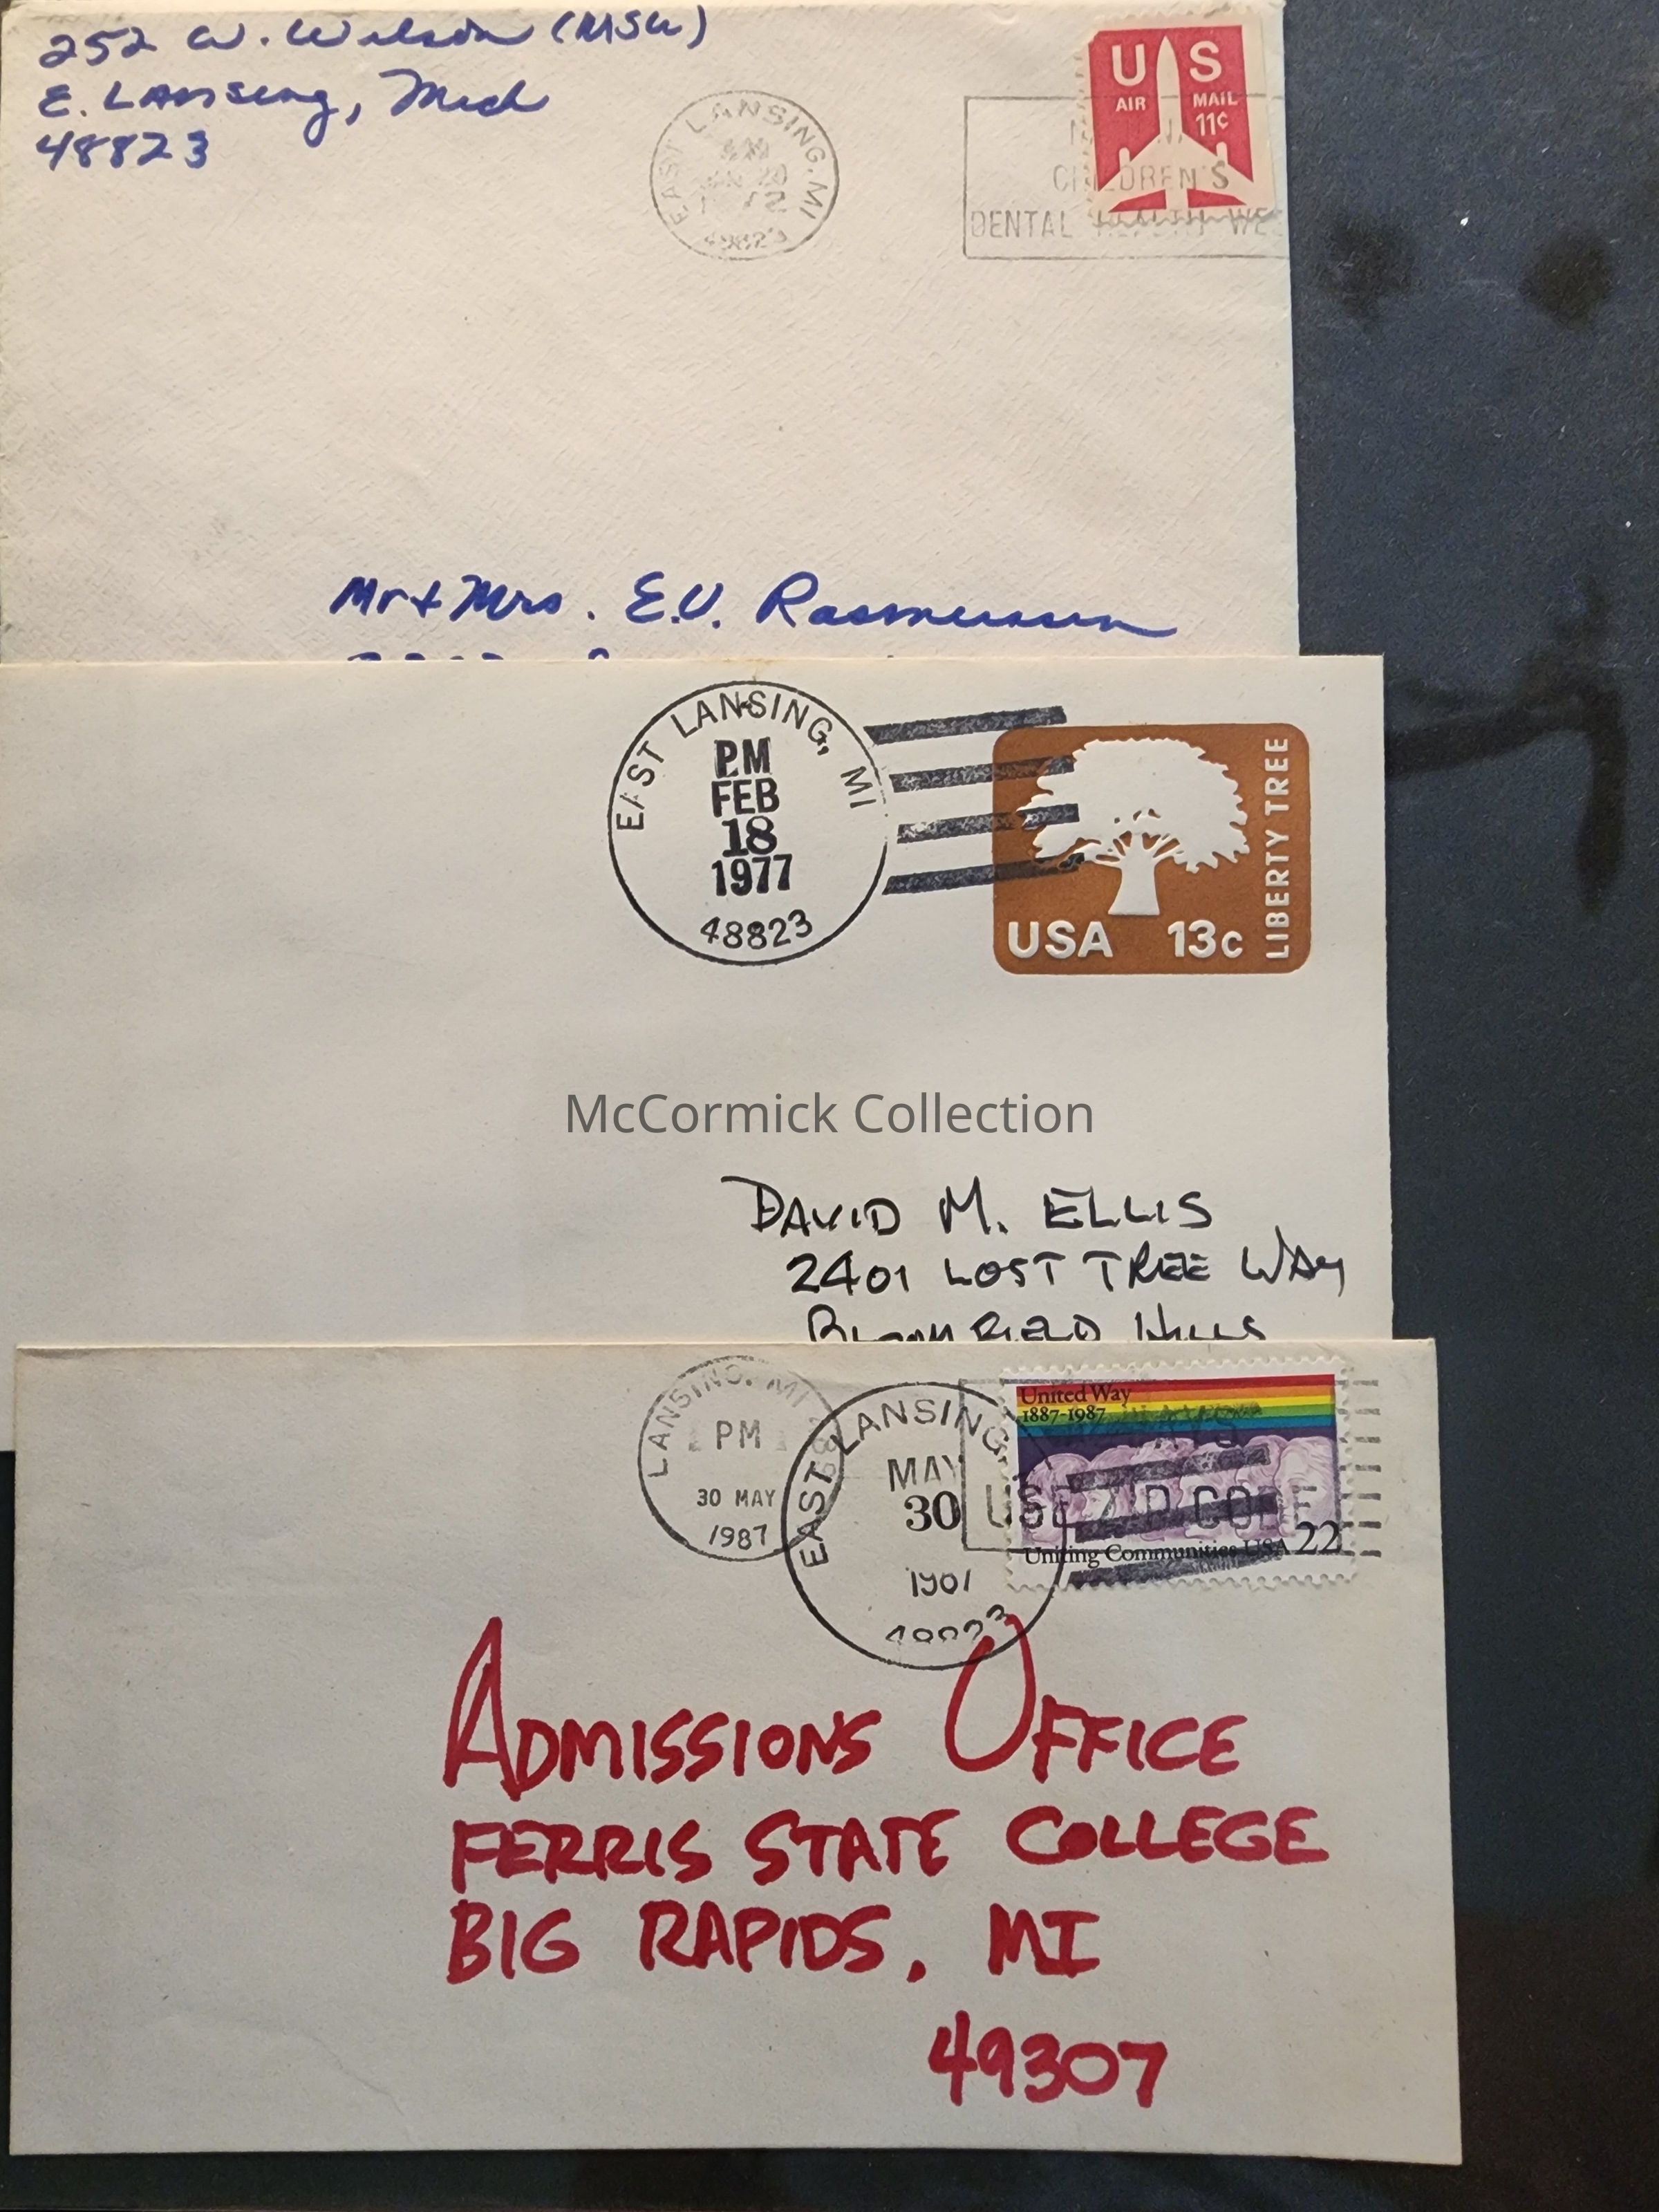 252 W. Wilson (MSU)
E. Lansing, Mich
48823
EAST LANSING, MI
U S
AIR MAIL
11¢
CHILDREN'S
DENTAL HEALTH WE
Mr & Mrs. E.V. Rasmussen
EAST LANSING, MI
PM
FEB
18
1977
48823
USA 13c
LIBERTY TREE
McCormick Collection
DAVID M. ELLIS
2401 LOST TREE WAY
BLOOMFIELD HILLS
LANSING, MI
PM
30 MAY
1987
EAST LANSING
MAY
30
United Way
1887-1987
USE ZIP CODE
Uniting Communities USA 22
ADMISSIONS OFFICE
FERRIS STATE COLLEGE
BIG RAPIDS, MI
49307